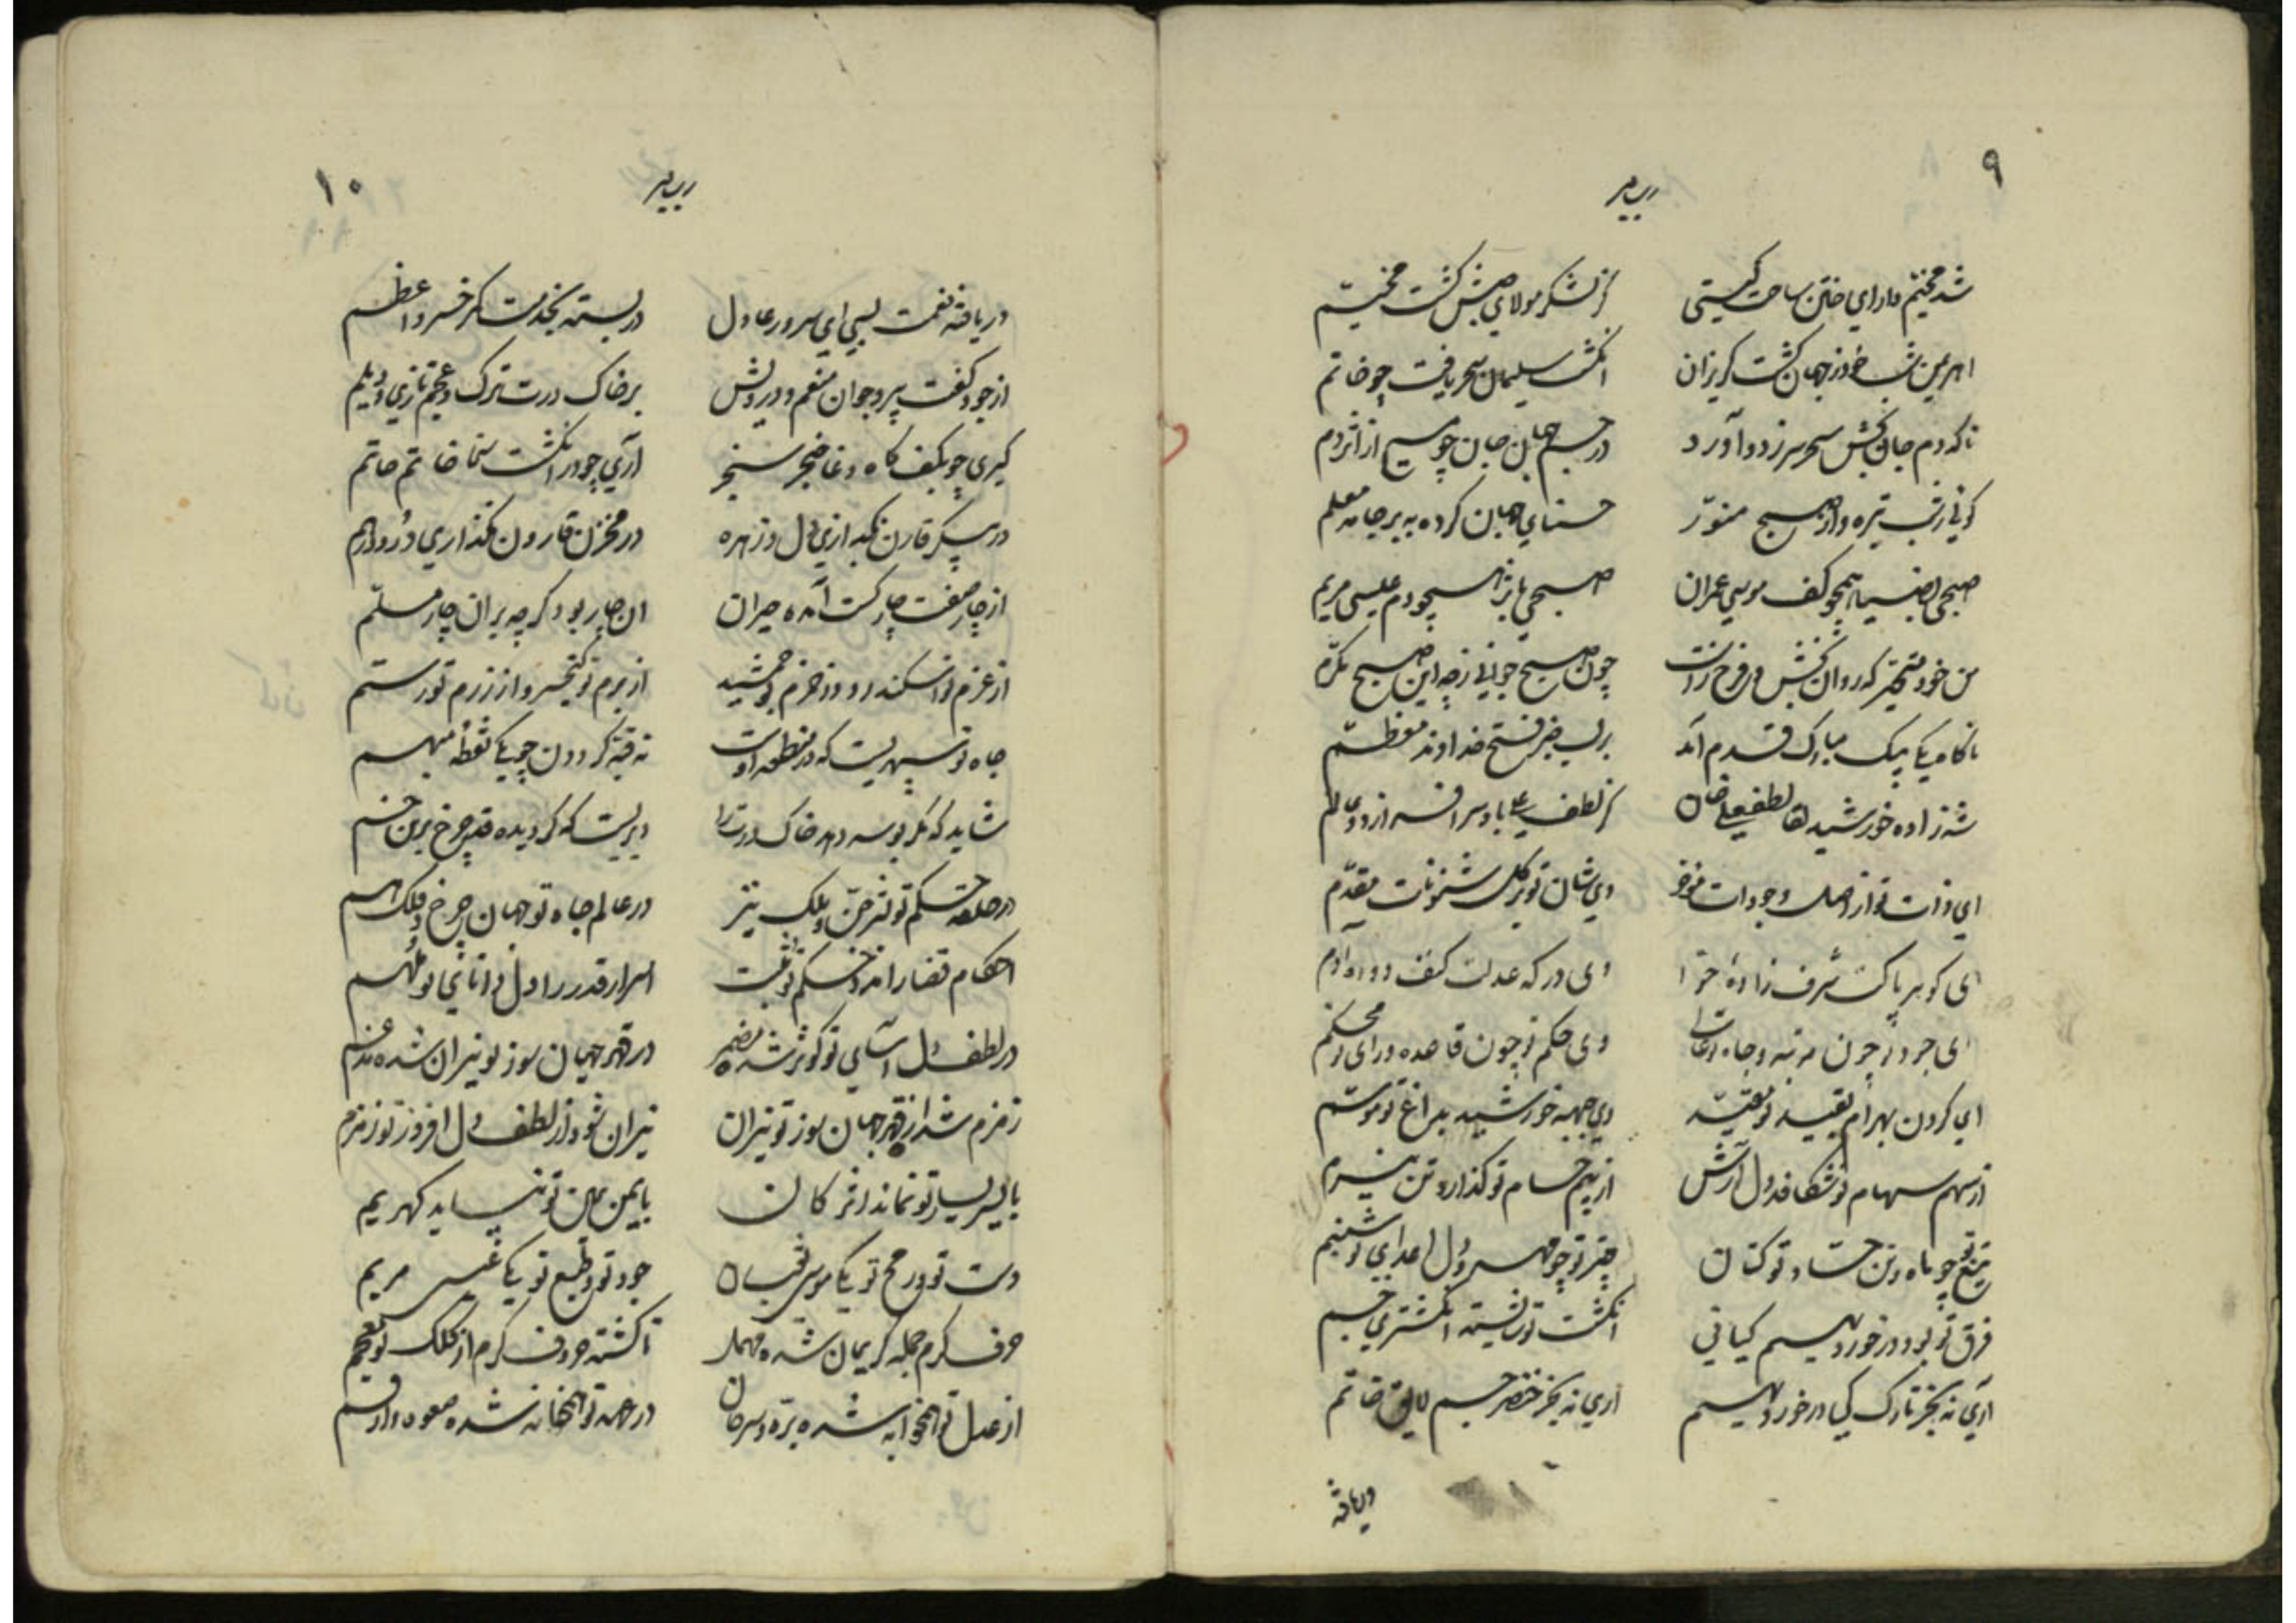 ۹
شد مختم دارای ختن ساحت گیتی کز لشکر مولای حبش گشت مخیّم
اهریمن شب خود ز جهان گشت گریزان انگشت سلیمان سحر یافت چو خاتم
ناگه دم جان بخش سحر سر زد و آورد در جسم جهان جان چو مسیح از اثر دم
گوئی ز شب تیره و از صبح منوّر خنسای جهان کرده ببر جامه معلم
صبحی بضیا همچو کف موسی عمران صبحی باثر همچو دم عیسی مریم
من خود متحیّر که روان بخش و فرح زاست چون صبح جوانی ز چه این صبح مکرّم
ناگاه یکی پیک مبارک قدم آمد بر لب خبر فتح خداوند معظّم
شه زاده خورشید لقا لطفعلی خان کز لطف علی باد سرافسر از دوی عالم
ای ذات تو از اصل وجودات مؤخر وی شان تو بر کل شئونات مقدّم
ای گوهر پاکت شرف زادهٔ حوّا وی درگه عدلت کنف دودهٔ آدم
ای جود تو چون مرتبه و جاه تو وی حکم تو چون قاعده و رای تو محکم
ای گردن بهرام بقید تو مقیّد وی جبهه خورشید بداغ تو موسّم
از سهم سهام تو شکافد دل آرش از بیم حسام تو گذارد تن نیرم
تیغ تو چو ماه و تن حسّاد تو کتان چتر تو چو مهر و دل اعدای تو شبنم
فرق تو بود در خور دیهیم کیانی انگشت تو شایسته انگشتری جم
آری نه بجز تارک کی در خور دیهیم آری نه بجز خنصر جم لایق خاتم
دریافته
۱۰
دریافته نعمت بسی ای سرور عادل دربسته بخدمت کمر خسرو اعظم
از جود کفت پیر و جوان منعم و درویش بر خاک درت ترک و عجم تازی و دیلم
گیری چو بکف گاه وغا خنجر سنجر آری چو در انگشت سخا خاتم حاتم
در پیکر قارن نگدازی دل و زهره در مخزن قارون نگذاری در و درهم
از چار صفت چار کست آمده حیران ان چار بود گرچه بر ان چار مسلّم
از عزم تو اسکندر و وز حزم تو جمشید از بزم تو کیخسرو و از رزم تو رستم
جاه تو سپهریست که در منطقه اوست نه قبّه گردون چو یکی نقطهٔ مبهم
شاید که مگر بوسه دهد خاک درت را دیریست که گردیده قد چرخ برین خم
در حلقه حکم تو بشر جنّ و ملک نیز در عالم جاه تو جهان چرخ و فلک هم
احکام قضا را اثر حکم تو مثبت اسرار قدر را دل دانای تو ملهم
در لطف دل آسای تو کوثر شده مضمر در قهر جهان سوز تو نیران شده مدغم
زمزم شد از قهر جهان سوز تو نیران نیران شود از لطف دل افروز تو زمزم
با یسر یسار تو نماند اثر کان با یمن یمین تو نپاید گهر یم
دست تو و رمح تو یکی موسی و ثعبان جود تو و طبع تو یکی عیسی مریم
حرف کرم جمله کریمان شده مهمل تا گشته حروف کرم از کلک تو معجم
از عدل تو همخوابه شده برّه و سرحان در عهد تو همخانه شده صعوه و ارقم